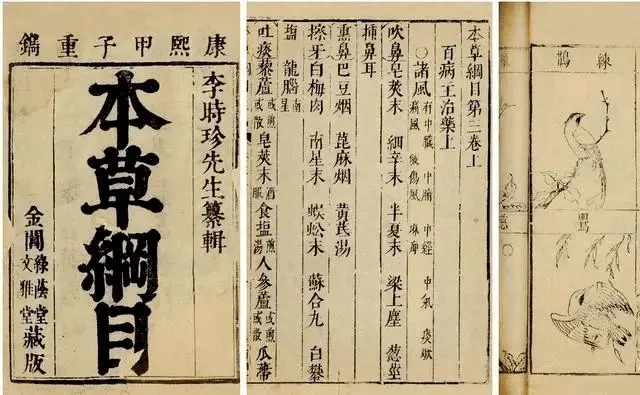 康熙甲子重鐫
李時珍先生纂輯
本草綱目
金閶綠蔭堂文雅堂藏版
本草綱目第三卷上
百病主治藥上
○諸風 有中臟 中腑 中經 中氣 痰厥 痛風 破傷風 麻痺
吹鼻皂莢末 細辛末 半夏末 梁上塵 葱莖
插鼻耳
熏鼻巴豆烟 蓖麻烟 黃芪湯
擦牙白梅肉 南星末 蜈蚣末 蘇合丸 白礬
塩 龍腦南星
吐痰藜蘆或煎或散 皂莢末酒服 食塩煎湯 人參蘆或煎或散 瓜蒂
練鵲